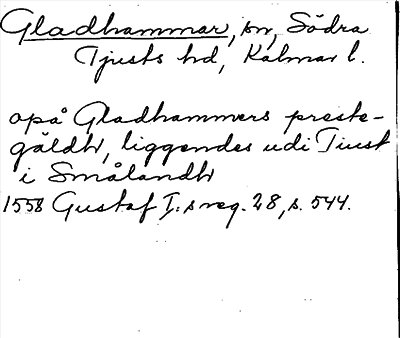 Gladhammar, sn, Södra
Tjusts hd, Kalmar l.
opå Gladhammers preste-
gäldh, liggendes udi Tiust
i Smålandh
1558 Gustaf I:s reg. 28, s. 544.